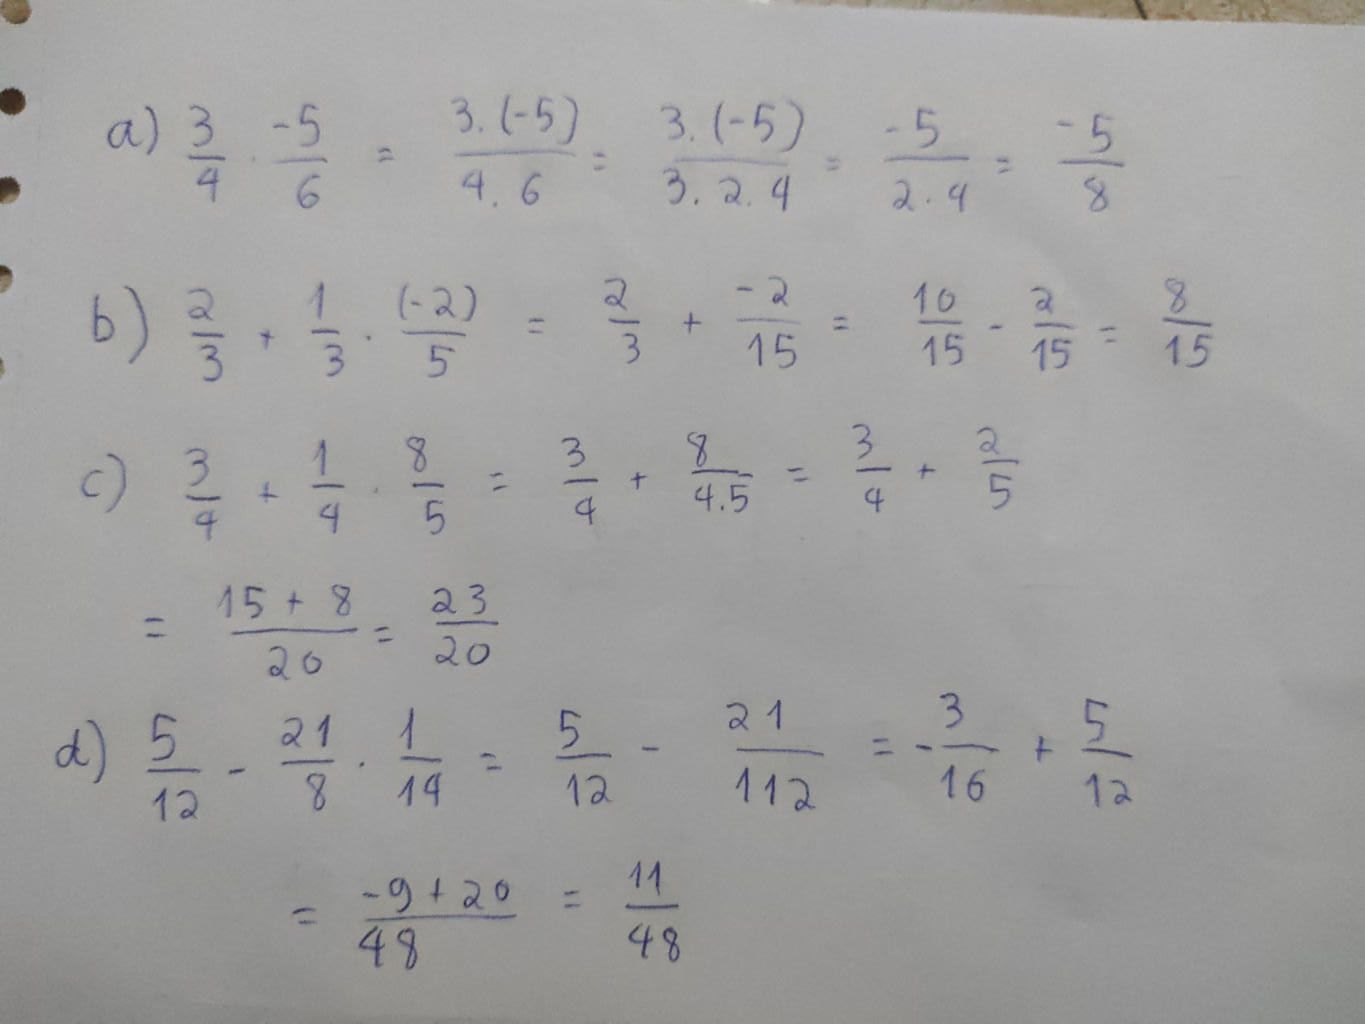 a) 3/4 . -5/6 = 3.(-5)/4.6 = 3.(-5)/3.2.4 = -5/2.4 = -5/8
b) 2/3 + 1/3 . (-2)/5 = 2/3 + -2/15 = 10/15 - 2/15 = 8/15
c) 3/4 + 1/4 . 8/5 = 3/4 + 8/4.5 = 3/4 + 2/5
= 15 + 8/20 = 23/20
d) 5/12 - 21/8 . 1/14 = 5/12 - 21/112 = -3/16 + 5/12
= -9 + 20/48 = 11/48